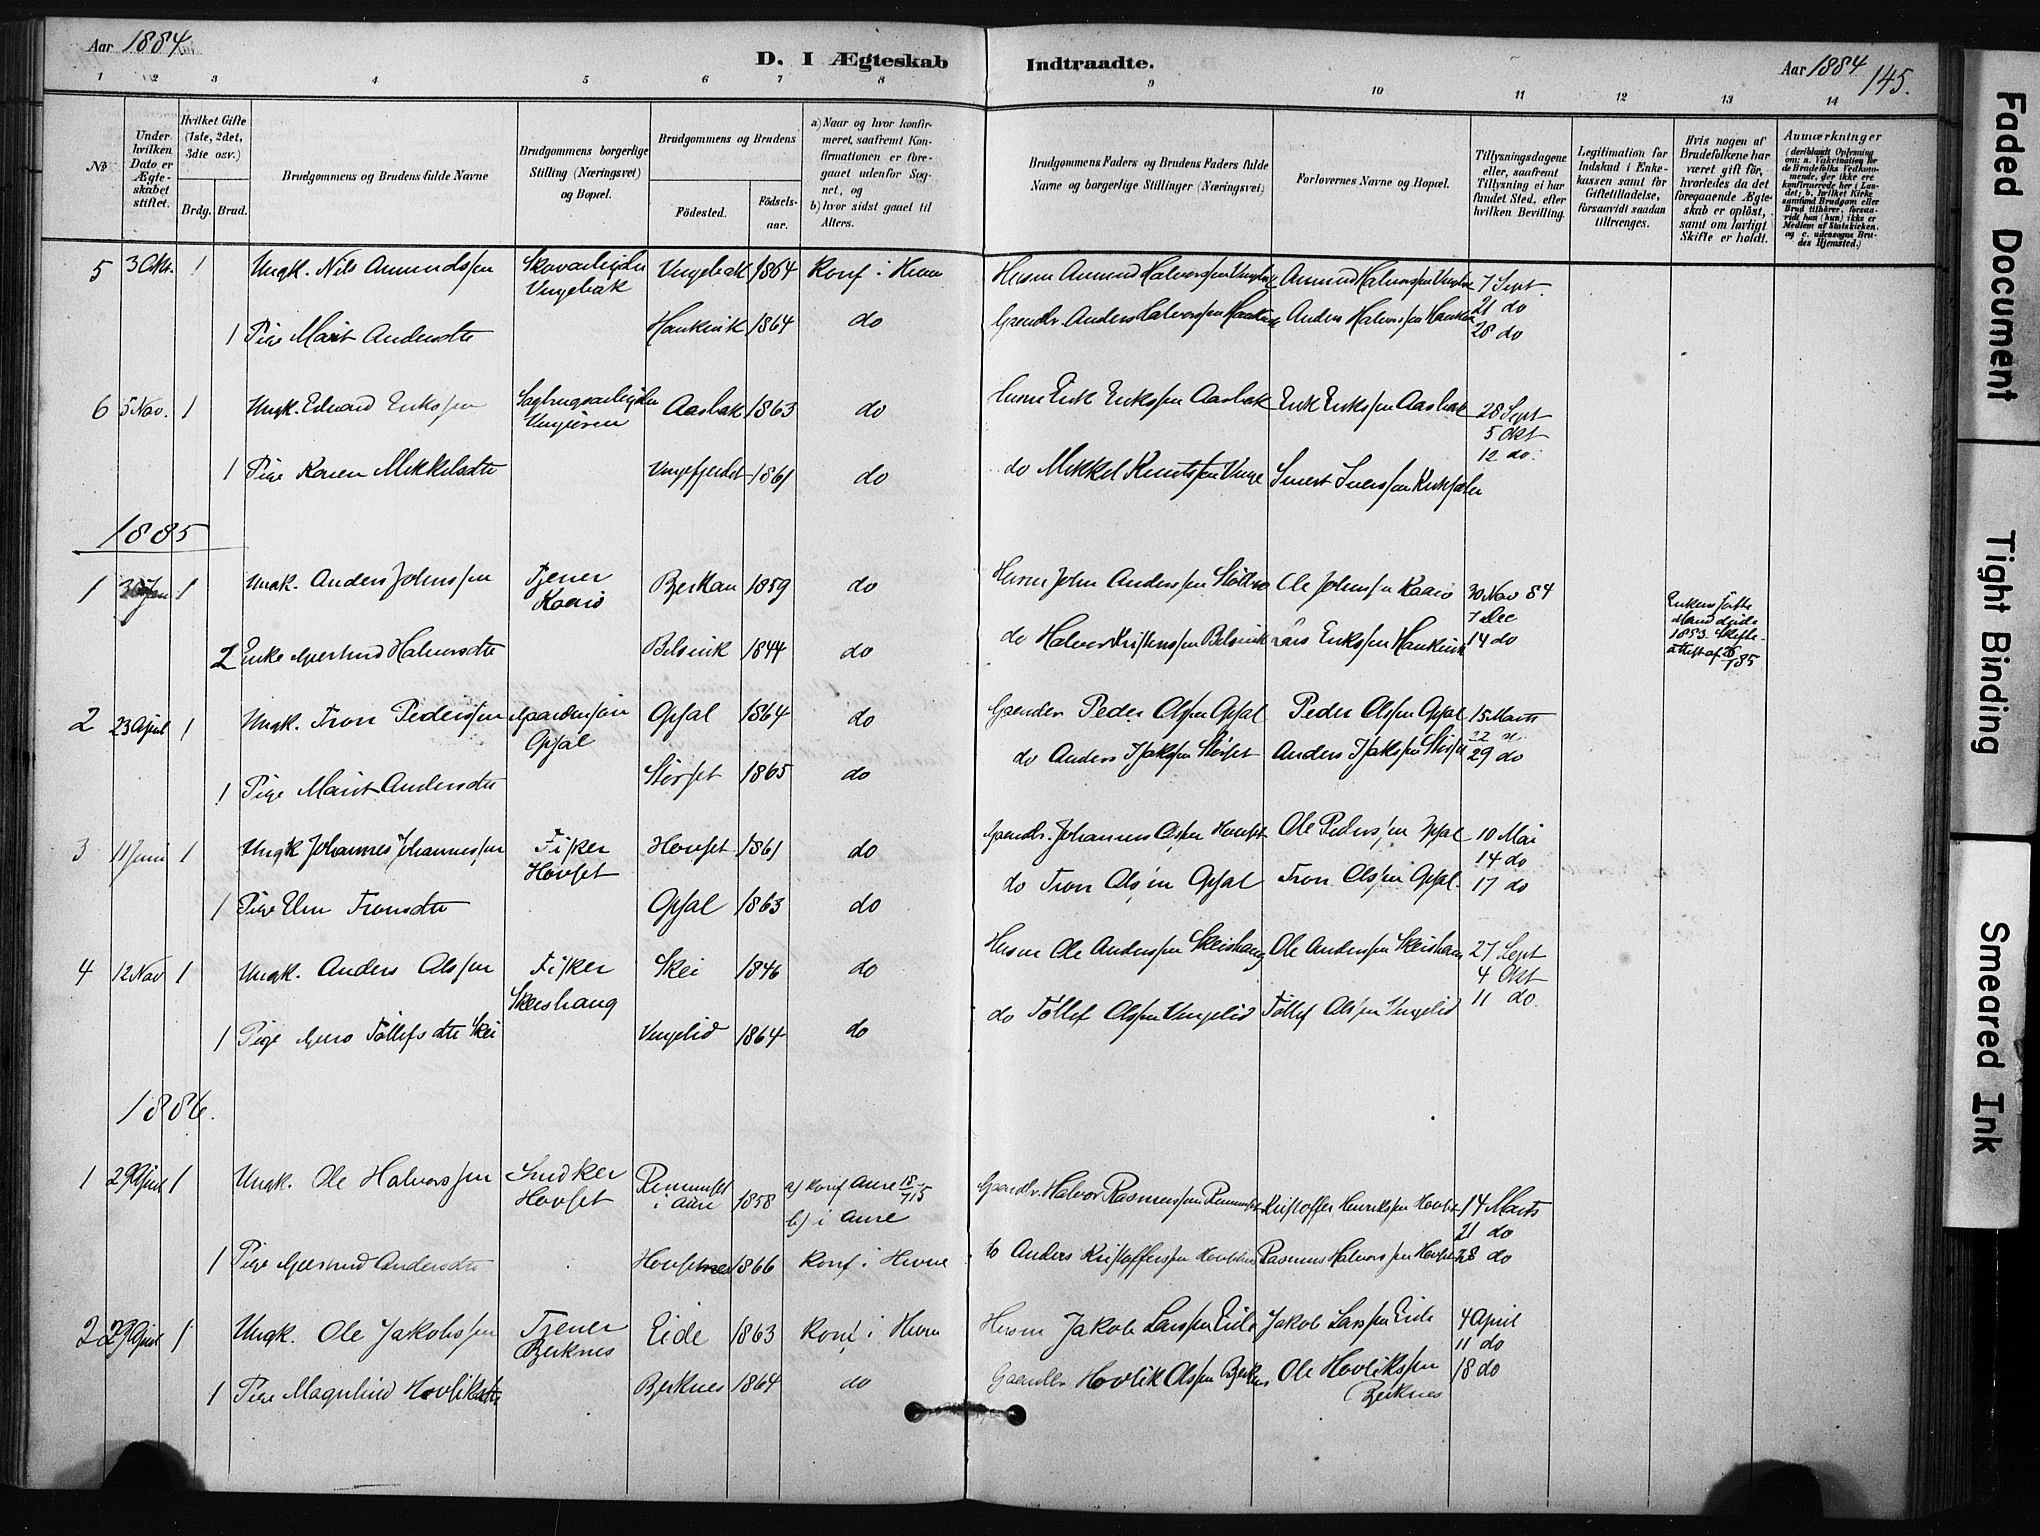 Aar 1884
D. I Ægteskab Indtraadte.
Aar 1884
145.
1 2 3 4 5 6 7 8 9 10 11 12 13 14
No
Under hvilken Dato er Ægteskabet stiftet.
Hvilket Gifte (1ste, 2det, 3die osv.)
Brdg. Brud.
Brudgommens og Brudens fulde Navne
Brudgommens borgerlige Stilling (Næringsvei) og Bopæl.
Brudgommens og Brudens
Fødested. Fødselsaar.
a) Naar og hvor konfirmeret, saafremt Konfirmationen er foregaaet udenfor Sognet, og
b) hvor sidst gaaet til Alters.
Brudgommens Faders og Brudens Faders fulde Navne og borgerlige Stillinger (Næringsvei)
Forlovernes Navne og Bopæl.
Tillysningsdagene eller, saafremt Tillysning ei har fundet Sted, efter hvilken Bevilling.
Legitimation for Indskud i Enkekassen samt for Giftetilladelse, forsaavidt saadan tiltrænges.
Hvis nogen af Brudefolkene har været gift før, hvorledes da det foregaaende Ægteskab er opløst, samt om lovligt Skifte er holdt.
Anmærkninger
(deriblandt Oplysning om: a. Vakcination for de Brudefolks Vedkommende, der ikke ere konfirmerede her i Landet; b. hvilket Kirkesamfund Brudgom eller Brud tilhører, forsaavidt han (hun) ikke er Medlem af Statskirken, og c. udensogns Brudes Hjemsted.)
5 3 Okt. 1 Ungk. Nils Amundssen Vingebak Vingebak 1864 Konf i Hevne Husm Amund Halvorssen Amund Halvorssen 7 Sept.
21 do
1 Pige Marit Andersdtr Haukvik 1864 do Gaardbr. Anders Halvorssen Anders Halvorssen 28 do
6 5 Nov. 1 Ungk. Edvard Erikssen Aasbak 1863 do Husm Erik Erikssen Aasbak Erik Erikssen Aasbak 28 Sept
5 Okt
12 do.
1 Pige Karen Mikkelsdtr 1861 do do Mikkel Knutssen Vinge
1885
1 1 Ungk. Anders Johnssen Tjener Berkan 1859 do Husm John Anderssen Ole Johnssen 30 Nov 84
7 Dec
2 Enke Halvorsdtr Belsvik 1844 do do Halvor Belsvik Lars Erikssen Haukvik 14 do
2 23 April 1 Ungk. Tron Pederssen Opsal Opsal 1864 do Gaardbr Peder Olssen Opsal Peder Olssen Opsal 15 Marts
22 do
1 Pige Marit Andersdtr Størset 1865 do do Anders Størset Anders 29 do
3 11 Juni 1 Ungk Johannes Johannessen Fisker Hovset Hovset 1861 do Gaardbr. Johannes Olssen Hovset Ole Pederssen Opsal 10 Mai
14 do
1 Pige Tronsdtr Opsal 1863 do do Tron Olssen Opsal Tron Olssen Opsal. 17 do
4 12 Nov 1 Ungk. Anders Olssen Fisker Skeishaug Skei 1846 do Husm Ole Anderssen Skeishaug Ole Anderssen Skeishaug 27 Sept
4 Okt
1 Pige Guro Tøllefsdtr Skei Vingelid 1864 do do Tøllef Olssen Vingelid Tøllef Olssen Vingelid 11 do.
1886.
1 29 April 1 Ungk. Ole Halvorssen Snedker Hovset i Aure 1858 a) Konf Aure
b) i Aure
Gaardbr. Halvor Rasmussen Kristoffer Henrikssen Hovset 14 Marts
21 do
1 Pige Andersdtr Hovsetnes 1866 Konf. i Hevne do Anders Kristofferssen Rasmus Halvorssen 28 do
2 29 April 1 Ungk. Ole Jakobssen Tjener Berknes Eide 1863 Konf. i Hevne Husm Jakob Larssen Eide Jakob Larssen Eide 4 April
11 do
1 Pige Magnhild Hovliksdtr Berknes 1864 do Gaardbr Hovlik Olssen Ole Hovlikssen Berknes 18 do
Faded Document
Tight Binding
Smeared Ink